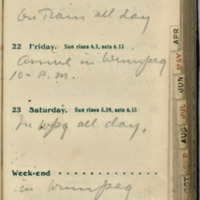 On Train all day
22 Friday. Sun rises 6.1, sets 6.15
Arrive in Winnipeg
10 - P.M.
23 Saturday. Sun rises 5.59, sets 6.15
In Wpg all day.
Week-end
in Winnipeg
APR
MAY
JUN
JUL
AUG
SEP
OCT